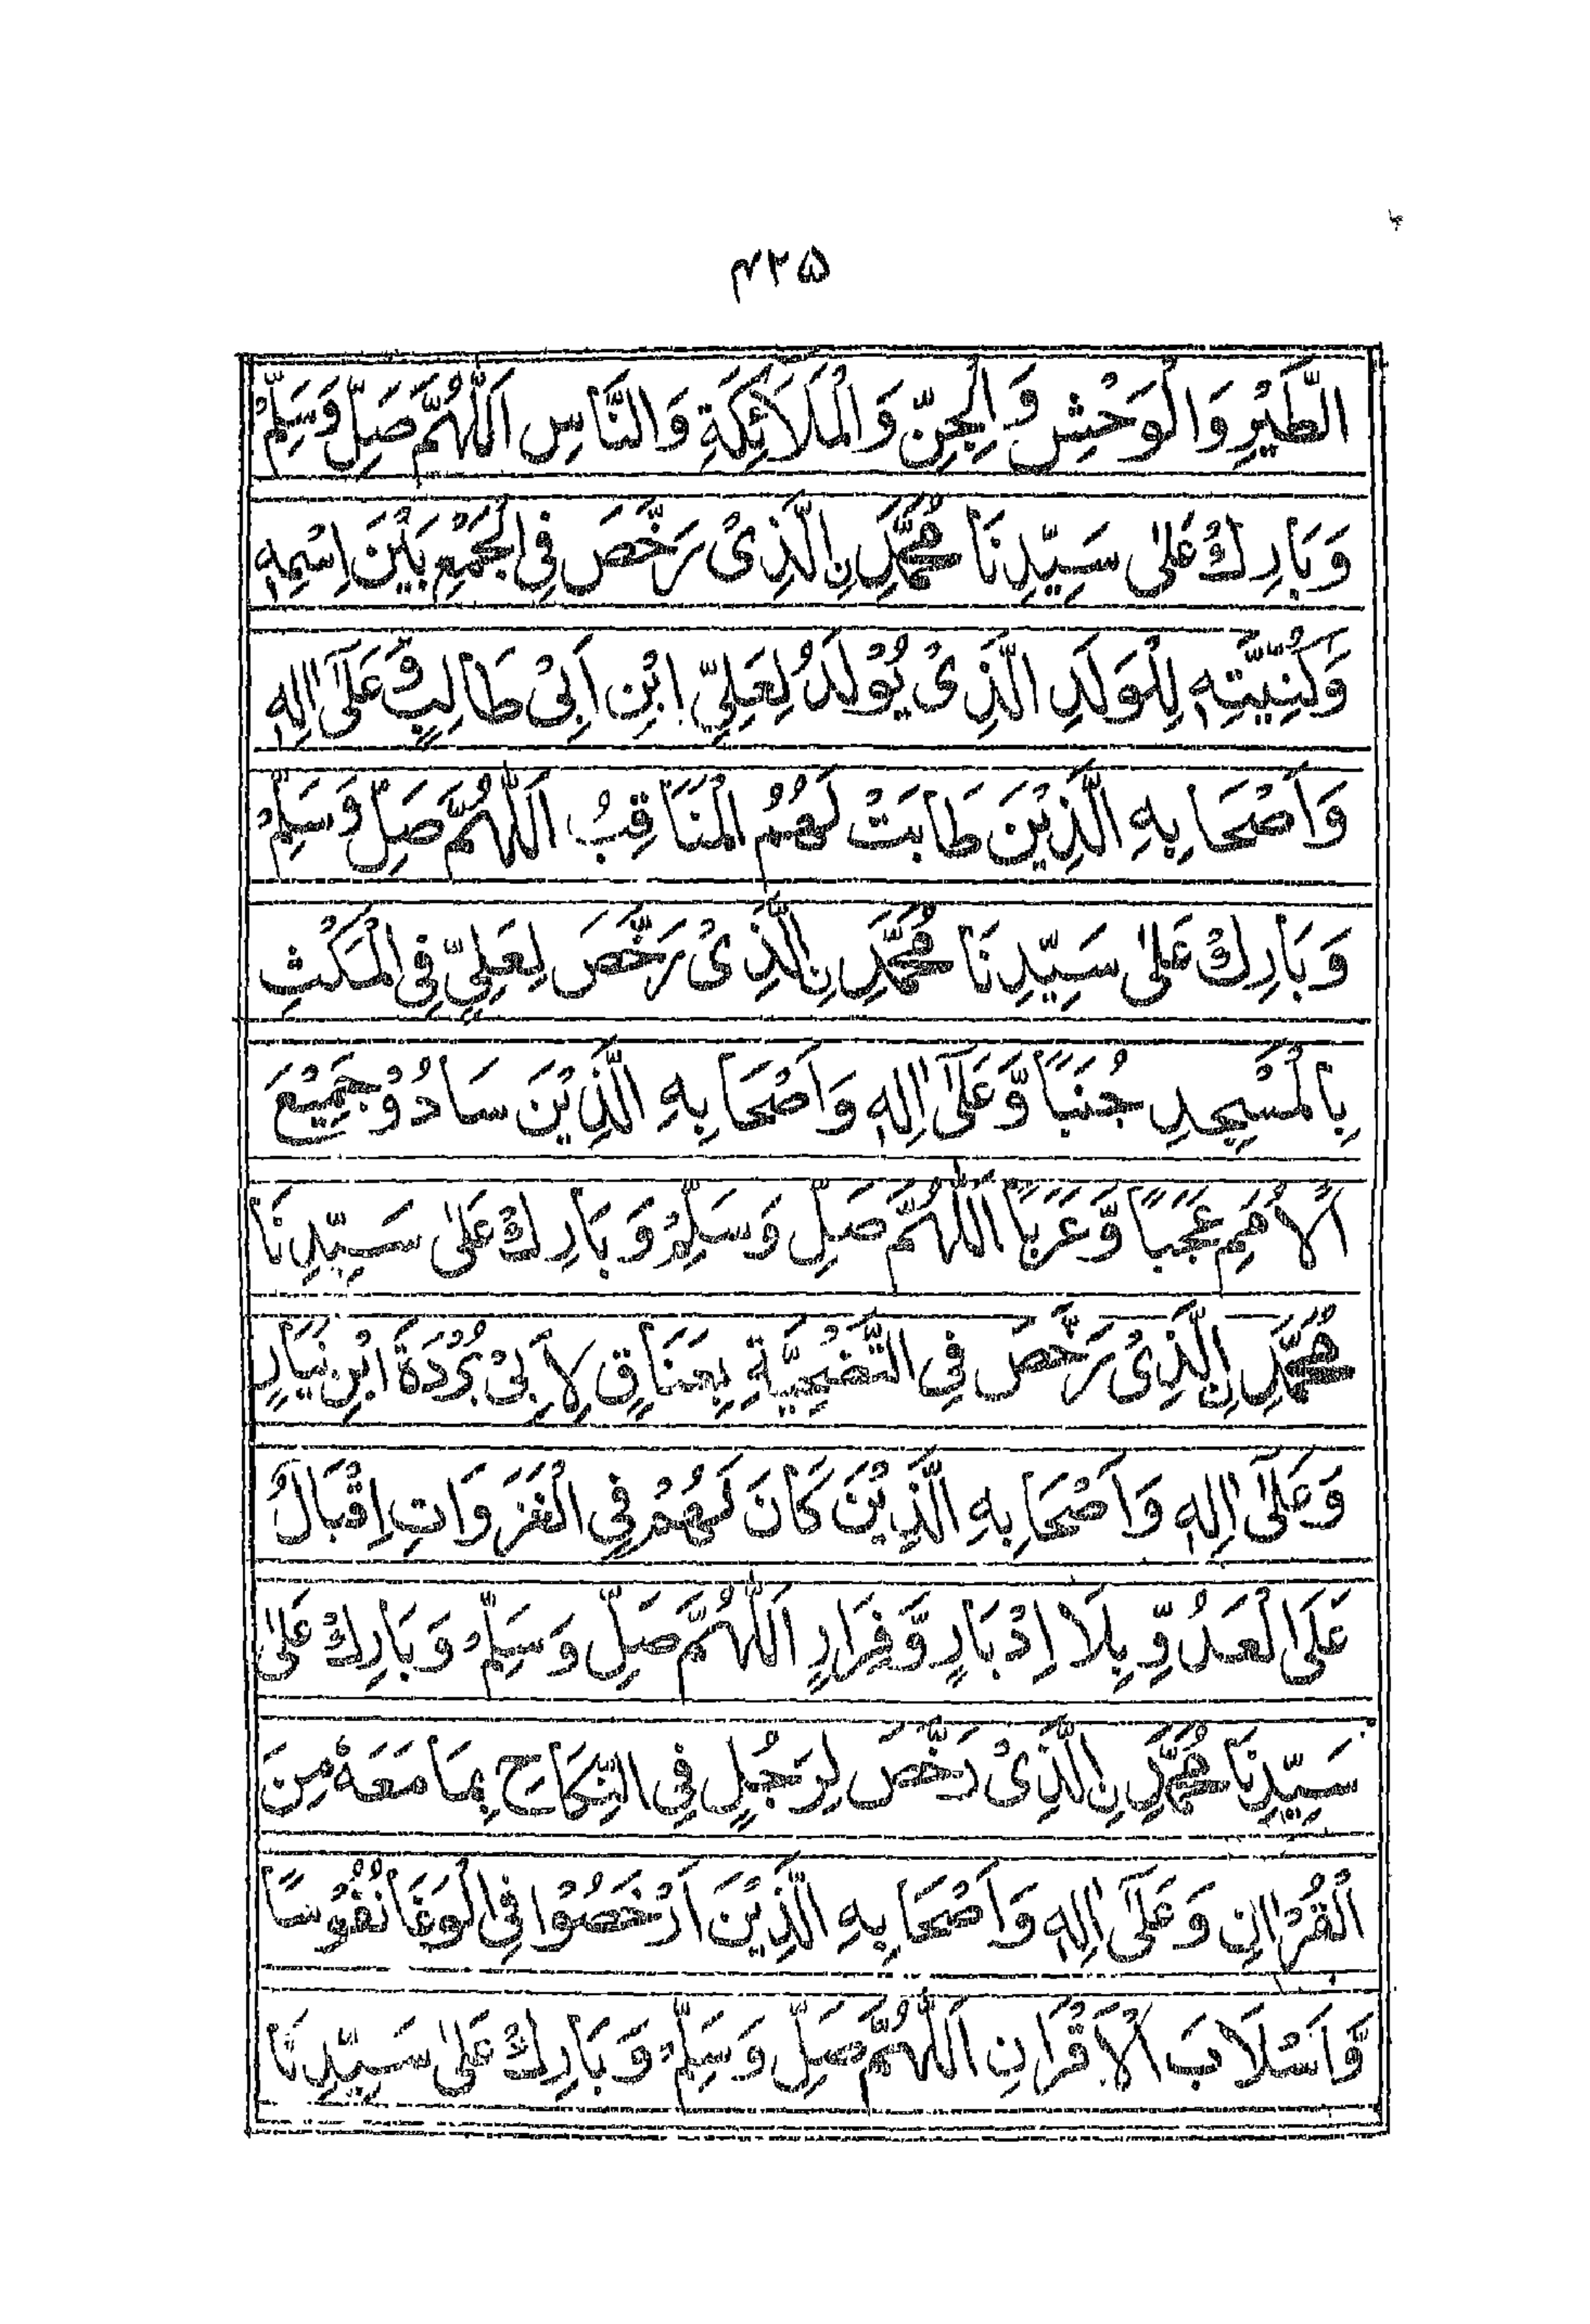 ۴۲۵
الطَّيْرِ وَالْوَحْشِ وَالْجِنِّ وَالْمَلَائِكَةِ وَالنَّاسِ اَللّٰهُمَّ صَلِّ وَسَلِّمْ
وَبَارِكْ عَلٰى سَيِّدِنَا مُحَمَّدِ نِ الَّذِىْ رَخَّصَ فِى الْجَمْعِ بَيْنَ اِسْمِهٖ
وَكُنِيَّتِهٖ لِلْوَلَدِ الَّذِىْ يُوْلَدُ لِعَلِيِّ ابْنِ اَبِىْ طَالِبٍ وَّعَلٰٓى اٰلِهٖ
وَاَصْحَابِهِ الَّذِيْنَ طَابَتْ لَهُمُ الْمَنَاقِبُ اَللّٰهُمَّ صَلِّ وَسَلِّمْ
وَبَارِكْ عَلٰى سَيِّدِنَا مُحَمَّدِ نِ الَّذِىْ رَخَّصَ لِعَلِيٍّ فِى الْمَكْثِ
بِالْمَسْجِدِ جُنَبًا وَّعَلٰٓى اٰلِهٖ وَاَصْحَابِهِ الَّذِيْنَ سَادُوْ جَمِيْعَ
الْاُمَمِ عَجَبًا وَّعَرَبًا اَللّٰهُمَّ صَلِّ وَسَلِّمْ وَبَارِكْ عَلٰى سَيِّدِنَا
مُحَمَّدِ نِ الَّذِىْ رَخَّصَ فِى التَّضْحِيَّةِ بِعَنَاقٍ لِاَبِىْ بُرْدَةَ ابْنِ نِيَارٍ
وَعَلٰٓى اٰلِهٖ وَاَصْحَابِهِ الَّذِيْنَ كَانَ لَهُمْ فِى الْغَزَوَاتِ اِقْبَالٌ
عَلَى الْعَدُوِّ بِلَا اِدْبَارٍ وَّفِرَارٍ اَللّٰهُمَّ صَلِّ وَسَلِّمْ وَبَارِكْ عَلٰى
سَيِّدِنَا مُحَمَّدِ نِ الَّذِىْ رَخَّصَ لِرَجُلٍ فِى النِّكَاحِ بِمَا مَعَهٗ مِنَ
الْقُرْاٰنِ وَعَلٰٓى اٰلِهٖ وَاَصْحَابِهِ الَّذِيْنَ اَرْخَصُوْا فِى الْوَغَا نُفُوْسًا
وَّاَسْلَابَ الْاَقْرَانِ اَللّٰهُمَّ صَلِّ وَسَلِّمْ وَبَارِكْ عَلٰى سَيِّدِنَا